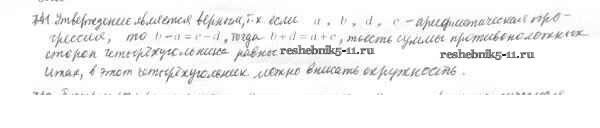 741. Утверждение является верным, т.к. если a, b, d, c - арифметическая про-
грессия, то b-a=c-d, тогда b+d=a+c, то есть суммы противоположных
сторон четырёхугольника равны reshebnik5-11.ru reshebnik5-11.ru
Итак, в этот четырёхугольник можно вписать окружность.